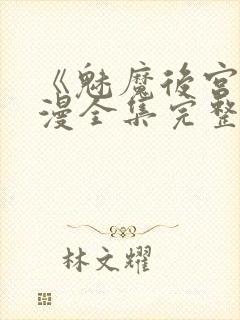 《魅魔后宫
漫全集完整
林文耀